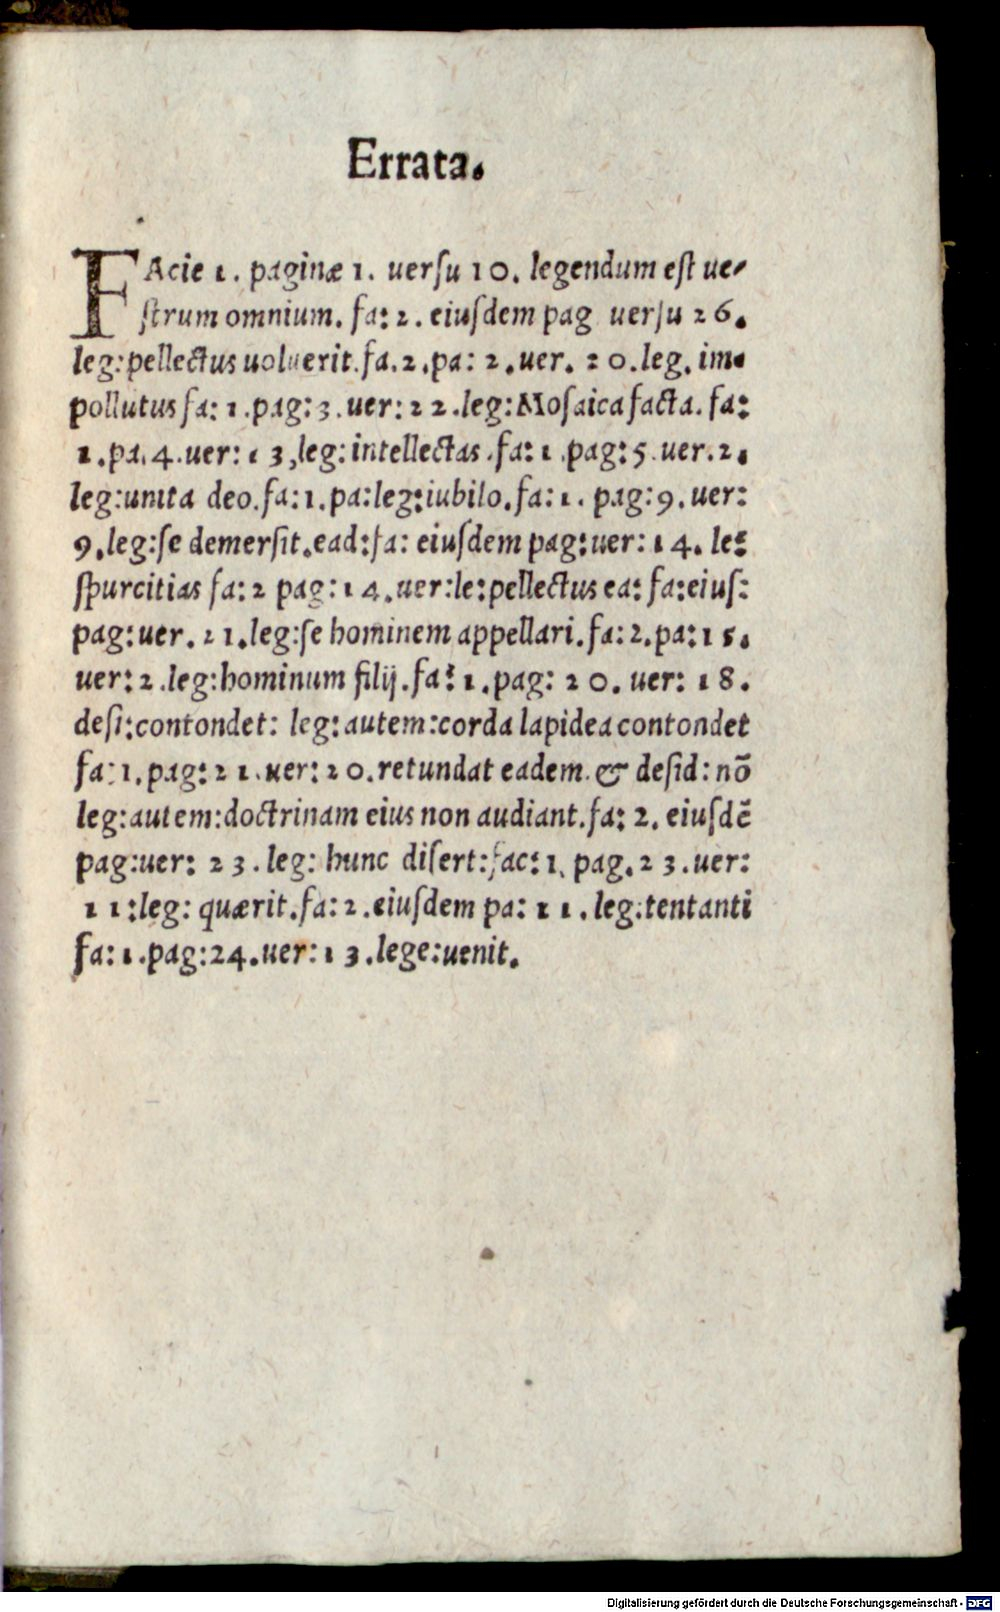 Errata.
FAcie 1. paginæ 1. uerſu 10. legendum eſt ue-
ſtrum omnium. fa: 2. eiuſdem pag uerſu 26.
leg: pellectus uoluerit. fa. 2. pa: 2. uer. 20. leg. im-
pollutus fa: 1. pag: 3. uer: 22. leg: Moſaica facta. fa:
1. pa. 4. uer: 13, leg: intellectas. fa: 1. pag: 5. uer. 2.
leg: unita deo. fa: 1. pa: leg: iubilo. fa: 1. pag: 9. uer:
9. leg: ſe demerſit. ead: fa: eiuſdem pag: uer: 14. le:
ſpurcitias fa: 2 pag: 14. uer: le: pellectus ea: fa: eiuſ:
pag: uer. 21. leg: ſe hominem appellari. fa: 2. pa: 15.
uer: 2. leg: hominum filij. fa: 1. pag: 20. uer: 18.
deſi: contondet: leg: autem: corda lapidea contondet
fa: 1. pag: 21. uer: 20. retundat eadem. & deſid: nō
leg: autem: doctrinam eius non audiant. fa: 2. eiuſdē
pag: uer: 23. leg: hunc diſert: fac: 1. pag. 23. uer:
11: leg: quærit. fa: 2. eiuſdem pa: 11. leg: tentanti
fa: 1. pag: 24. uer: 13. lege: uenit.
Digitalisierung gefördert durch die Deutsche Forschungsgemeinschaft - DFG